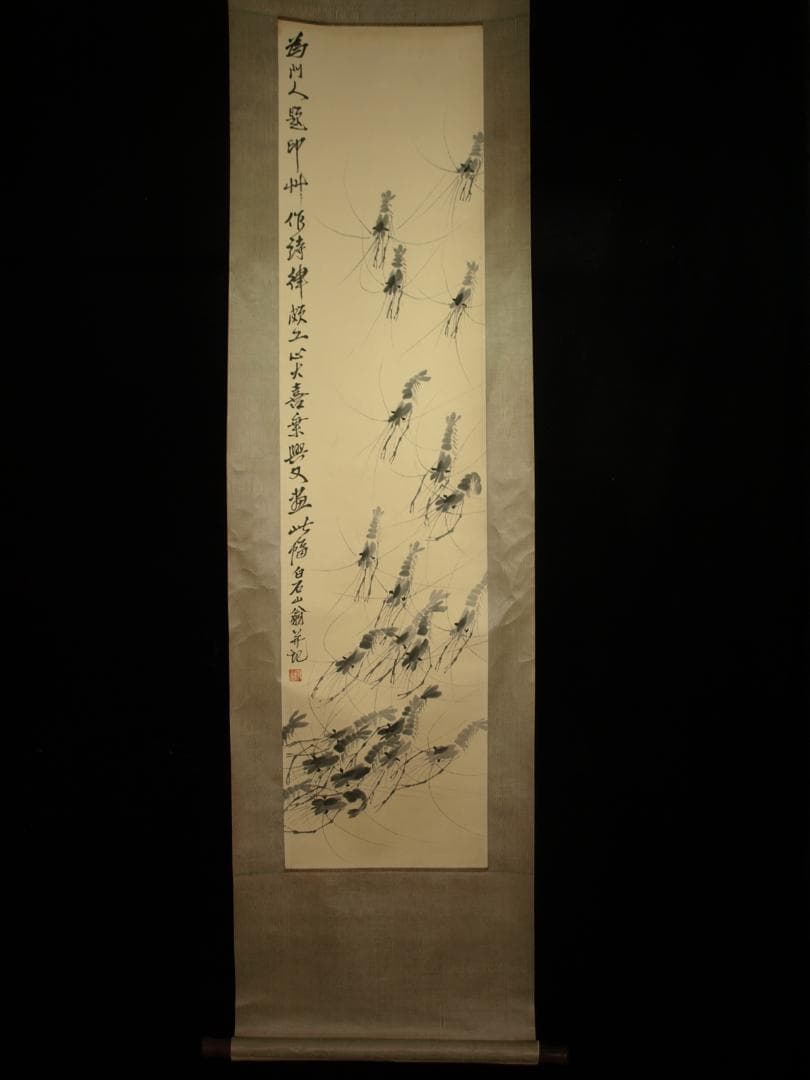 為門人題印艸作詩律頗工心大喜乘興又畫此幅白石山翁并記